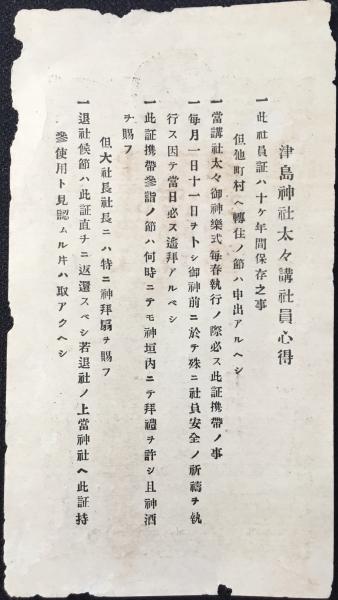 津島神社太々講社員心得
一此社員証ハ十ケ年間保存之事
但他町村ヘ轉住ノ節ハ申出アルヘシ
一當講社太々御神樂式毎春執行ノ際必ス此証携帶ノ事
一毎月一日十一日ヲトシ御神前ニ於テ殊ニ社員安全ノ祈禱ヲ執
行ス因テ當日必ス遙拜アルベシ
一此証携帶參詣ノ節ハ何時ニテモ神垣內ニテ拜禮ヲ許シ且神酒
ヲ賜フ
但大社長社長ニハ特ニ神拜扇ヲ賜フ
一退社候節ハ此証直チニ返還スベシ若退社ノ上當神社ヘ此証持
參使用ト見認ムル片ハ取アクヘシ